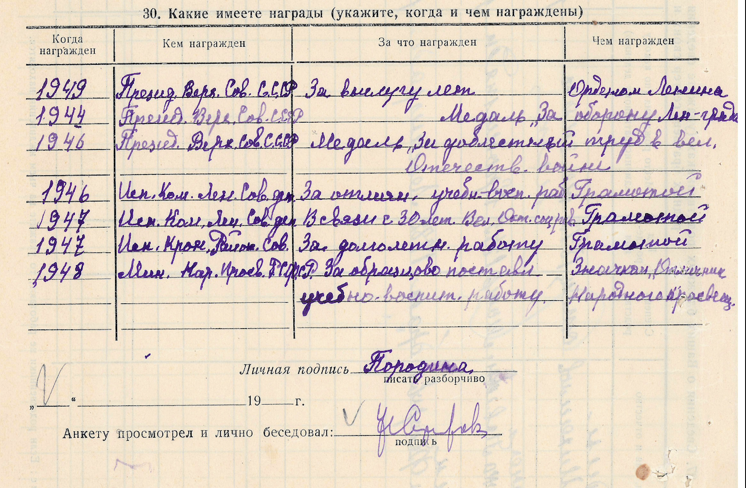 30. Какие имеете награды (укажите, когда и чем награждены)
Когда награжден Кем награжден За что награжден Чем награжден
1949 Презид. Верх. Сов. СССР За выслугу лет Орденом Ленина
1944 Презид. Верх. Сов. СССР Медаль „За оборону Лен-града
1946 Презид. Верх. Сов. СССР Медаль „За доблестный труд в вел.
Отечеств. войне
1946 Исп. Ком. Лен. Сов. деп За отличн. учебн-восп. раб Грамотой
1947 Исп. Ком. Лен. Сов. деп В связи с 30 лет Вел. Окт. Грамотой
1947 Исп. Район. Сов. За долголетн. работу Грамотой
1948 Мин. Нар. Просв. РСФСР За образцово поставл Значком „Отличник
учебно-воспит. работу. Народного просвещ.
Личная подпись
писать разборчиво
„ “ 19 г.
Анкету просмотрел и лично беседовал:
подпись